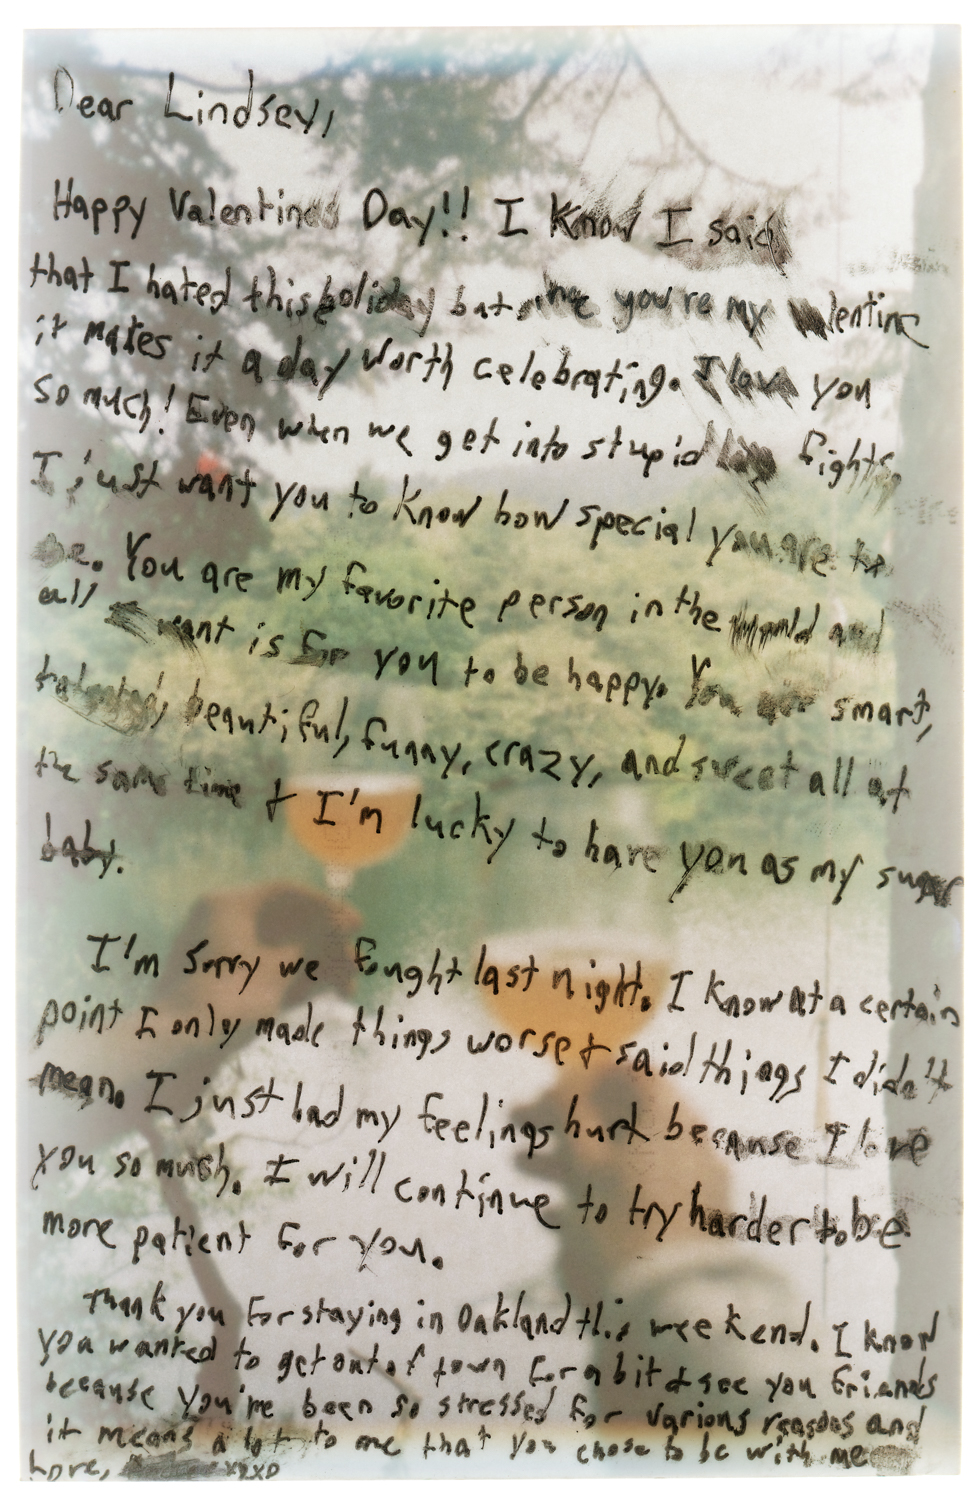 Dear Lindsey,
Happy Valentines Day!! I Know I said
that I hated this holiday but since you're my Valentine
it makes it a day worth celebrating. I love you
so much! Even when we get into stupid fights,
I just want you to know how special you are to
me. You are my favorite person in the world and
all I want is for you to be happy. You are smart,
talented, beautiful, funny, crazy, and sweet all at
the same time & I'm lucky to have you as my sugar
baby.
I'm sorry we fought last night. I know at a certain
point I only made things worse & said things I didn't
mean. I just had my feelings hurt because I love
you so much. I will continue to try harder to be
more patient for you.
Thank you for staying in Oakland this weekend. I know
you wanted to get out of town for a bit & see you friends
because you're been so stressed for various reasons and
it means a lot to me that you chose to be with me
Love, xoxo